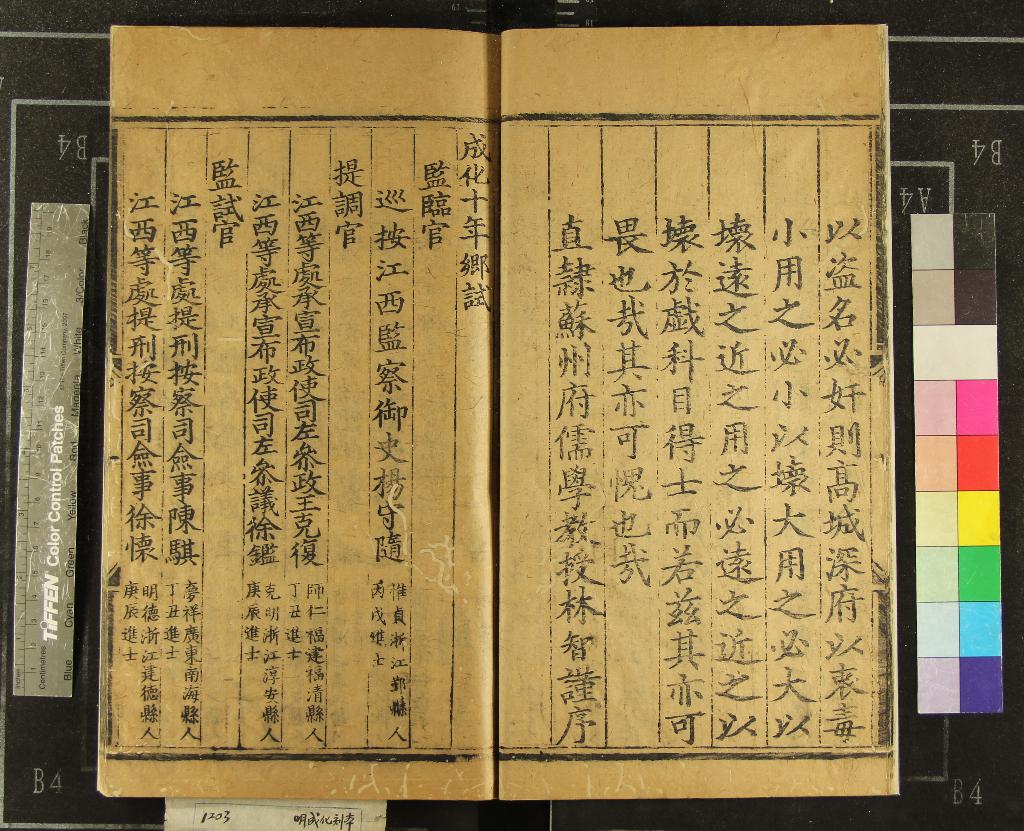 以盗名必奸則高城深府以衷毒
小用之必小以壊大用之必大以
壊遠之近之用之必遠之近之以
壊於戯科目得士而若茲其亦可
畏也哉其亦可愧也哉
直隸蘇州府儒學教授林智謹序
成化十年鄉試
監臨官
巡按江西監察御史楊守隨
惟貞浙江鄞縣人
丙戌進士
提調官
江西等處承宣布政使司左叅政王克復
師仁福建福清縣人
丁丑進士
江西等處承宣布政使司左叅議徐鑑
克明浙江淳安縣人
庚辰進士
監試官
江西等處提刑按察司僉事陳騏
夢祥廣東南海縣人
丁丑進士
江西等處提刑按察司僉事徐懷
明德浙江建德縣人
庚辰進士
1203
明成化刻本
TIFFEN Color Control Patches
Centimetres
Blue
Cyan
Green
Yellow
Red
Magenta
White
3/Color
Black
B4
B4
A4
B4
B4